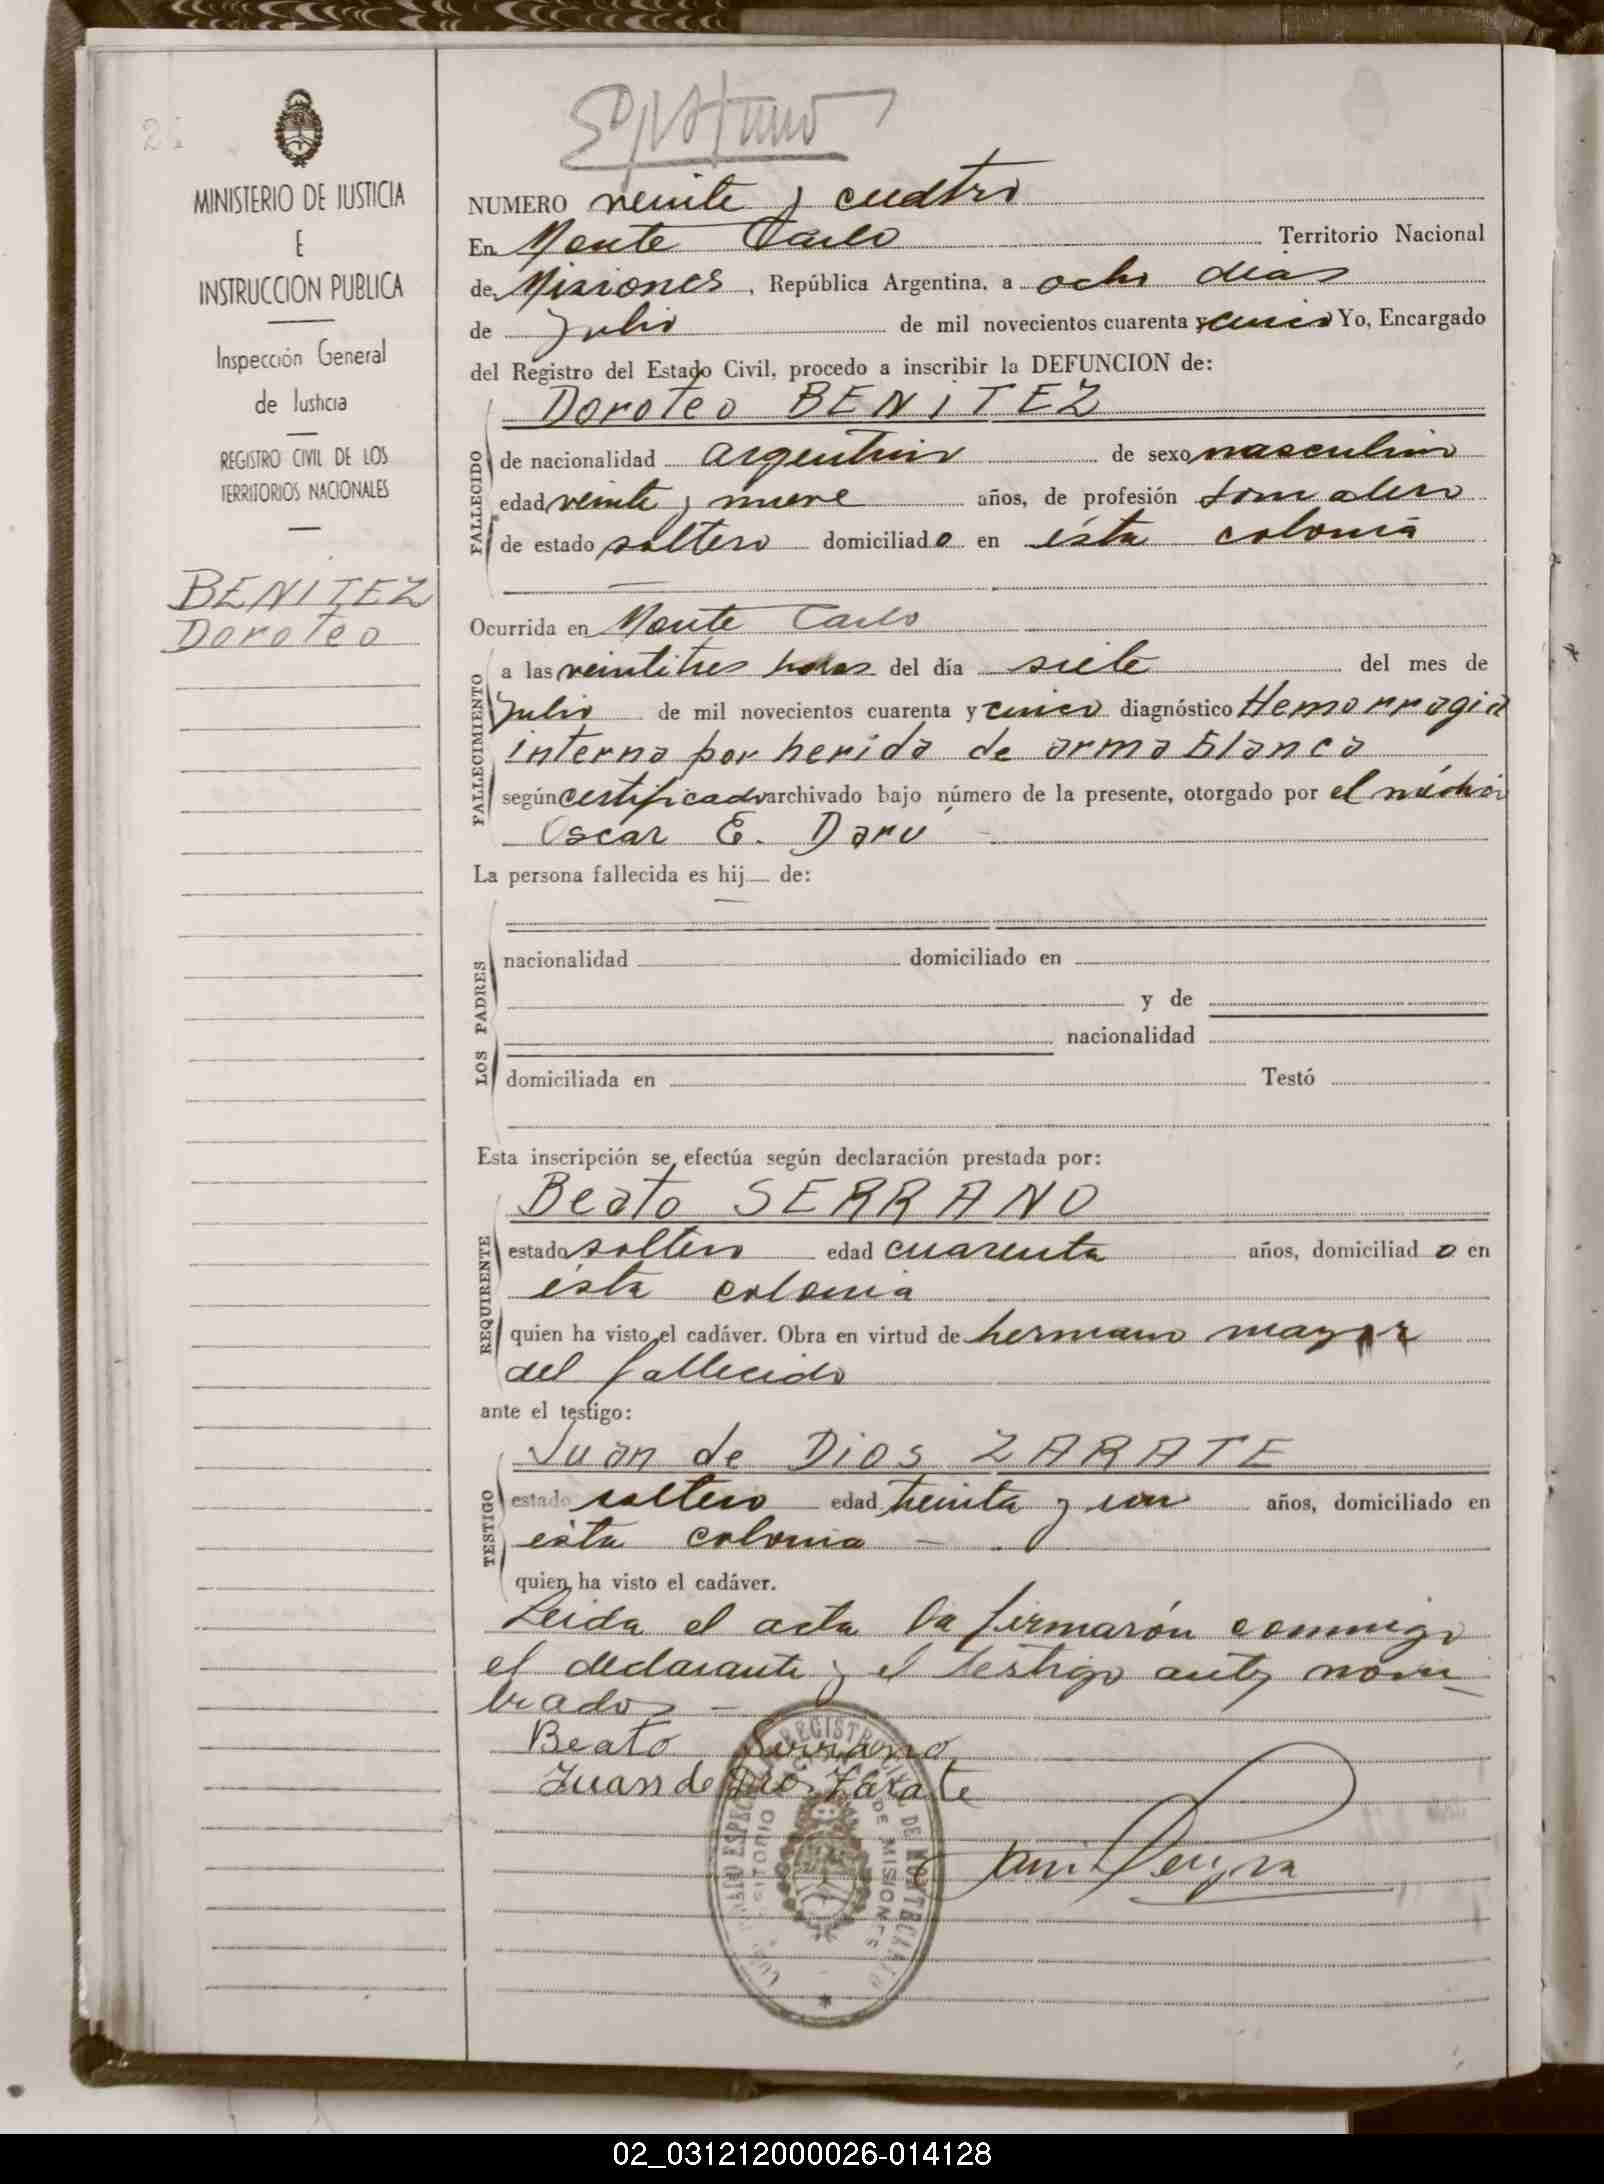 MINISTERIO DE JUSTICIA
E
INSTRUCCION PUBLICA
Inspección General
de Justicia
REGISTRO CIVIL DE LOS
TERRITORIOS NACIONALES
BENITEZ
Doroteo
NUMERO veinte y cuatro
En Monte Carlo Territorio Nacional
de Misiones, República Argentina, a ocho dias
de Julio de mil novecientos cuarenta y cinco Yo, Encargado
del Registro del Estado Civil, procedo a inscribir la DEFUNCION de:
Doroteo BENITEZ
FALLECIDO
de nacionalidad argentino de sexo masculino
edad veinte y nueve años, de profesión jornalero
de estado soltero domiciliado en ésta colonia
Ocurrida en Monte Carlo
FALLECIMIENTO
a las veintitres horas del día siete del mes de
Julio de mil novecientos cuarenta y cinco diagnóstico Hemorragia
interna por herida de arma blanca
según certificado archivado bajo número de la presente, otorgado por el médico
Oscar E. Darú
La persona fallecida es hij de:
LOS PADRES
nacionalidad domiciliado en
y de
nacionalidad
domiciliada en Testó
Esta inscripción se efectúa según declaración prestada por:
Beato SERRANO
REQUIRENTE
estado soltero edad cuarenta años, domiciliado en
ésta colonia
quien ha visto el cadáver. Obra en virtud de hermano mayor
del fallecido
ante el testigo:
Juan de Dios ZARATE
TESTIGO
estado soltero edad treinta y un años, domiciliado en
ésta colonia
quien ha visto el cadáver.
Leida el acta la firmarón conmigo
el declarante y el testigo antes nom-
brados
Beato Serrano
Juan de Dios Zarate
02_031212000026-014128